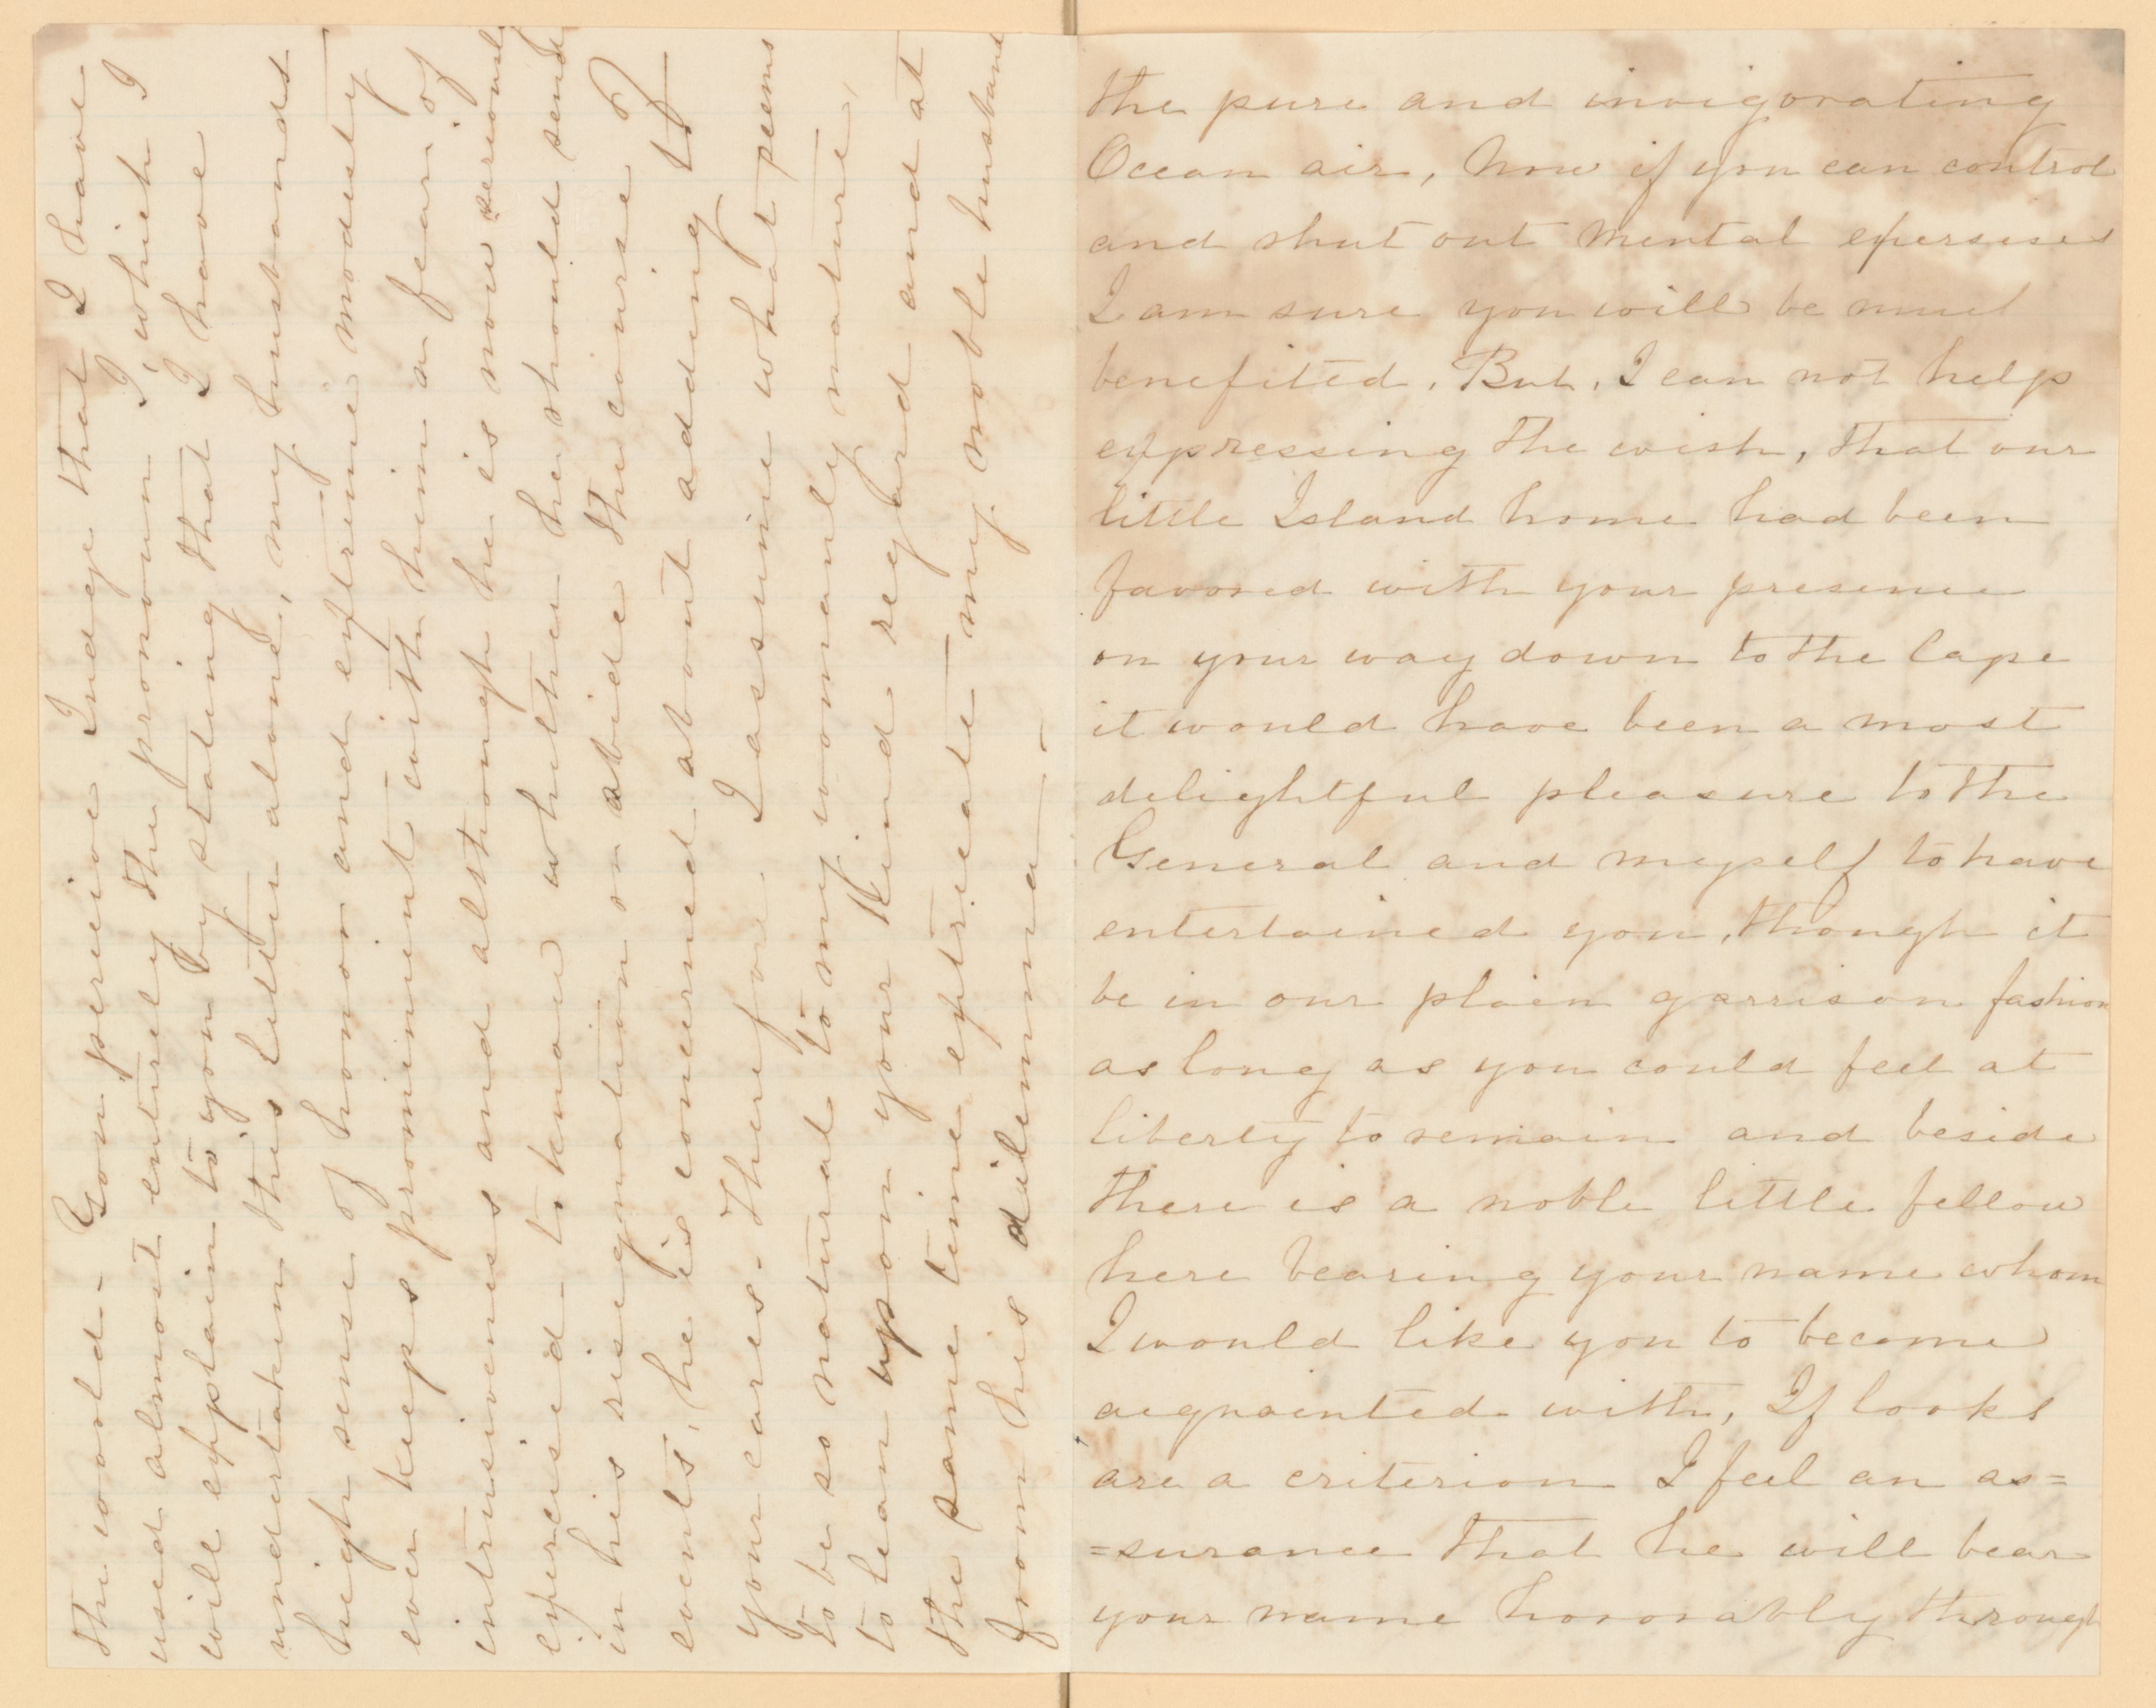 the pure and invigorating
Ocean air, Now if you can control
and shut out mental exersises
I am sure you will be much
benefited. But, I can not help
expressing the wish, that our
little Island home had been
favored with your presence
on your way down to the Cape
it would have been a most
delightful pleasure to the
General and myself to have
entertained you, though it
be in our plain garrison fashion
as long as you could feel at
liberty to remain and beside
there is a noble little fellow
here bearing your name whom
I would like you to become
acquainted with, If looks
are a criterion I feel an as=
=surance that he will bear
your name honorably through
the world - You perceive Judge that I have
used almost entirely the pronoun I, which I
will explain to you by stating that I have
undertaken this letter alone, my husbands
high sense of honor and extreme modesty
ever keeps prominent with him a fear of
intrusiveness and although he is now seriously
exercised to know whether he should send
in his resignation or abide the course of
events, he is concerned about adding to
your cares. Therefore I assume what seems
to be so natural to my womanly nature,
to lean upon your kind regard and at
the same time extricate my noble husband
from his dilemma. -